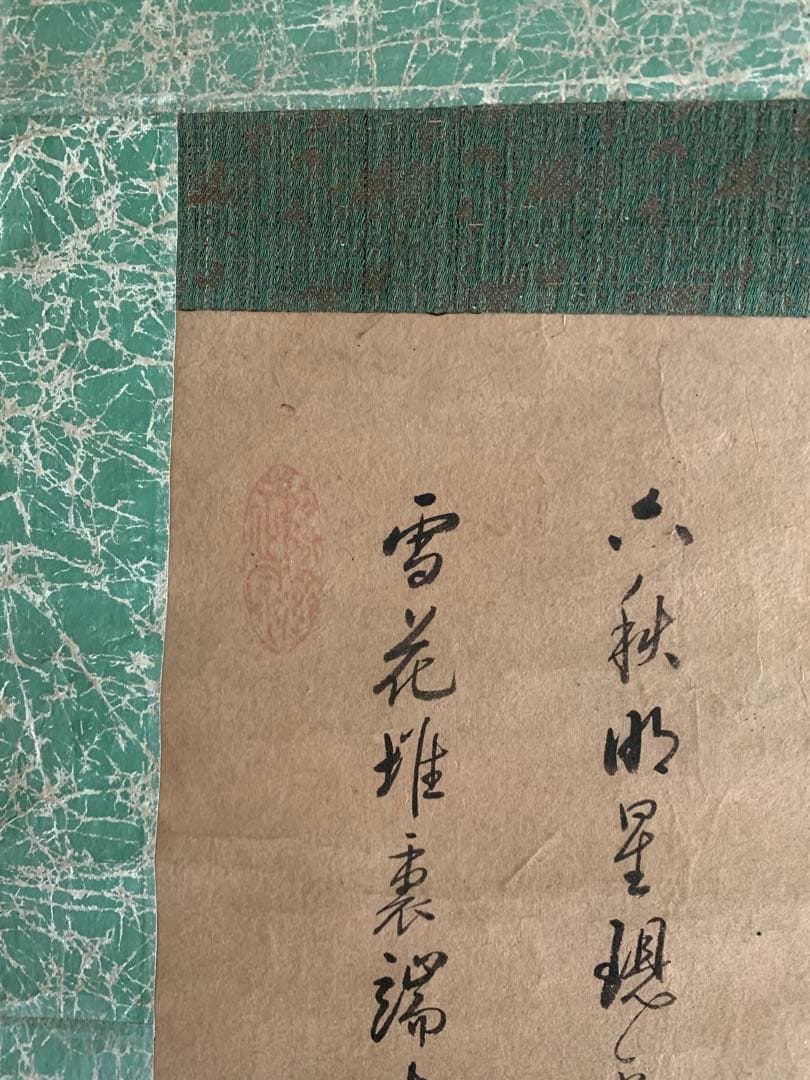 六秩明星現
雪花堆裏端